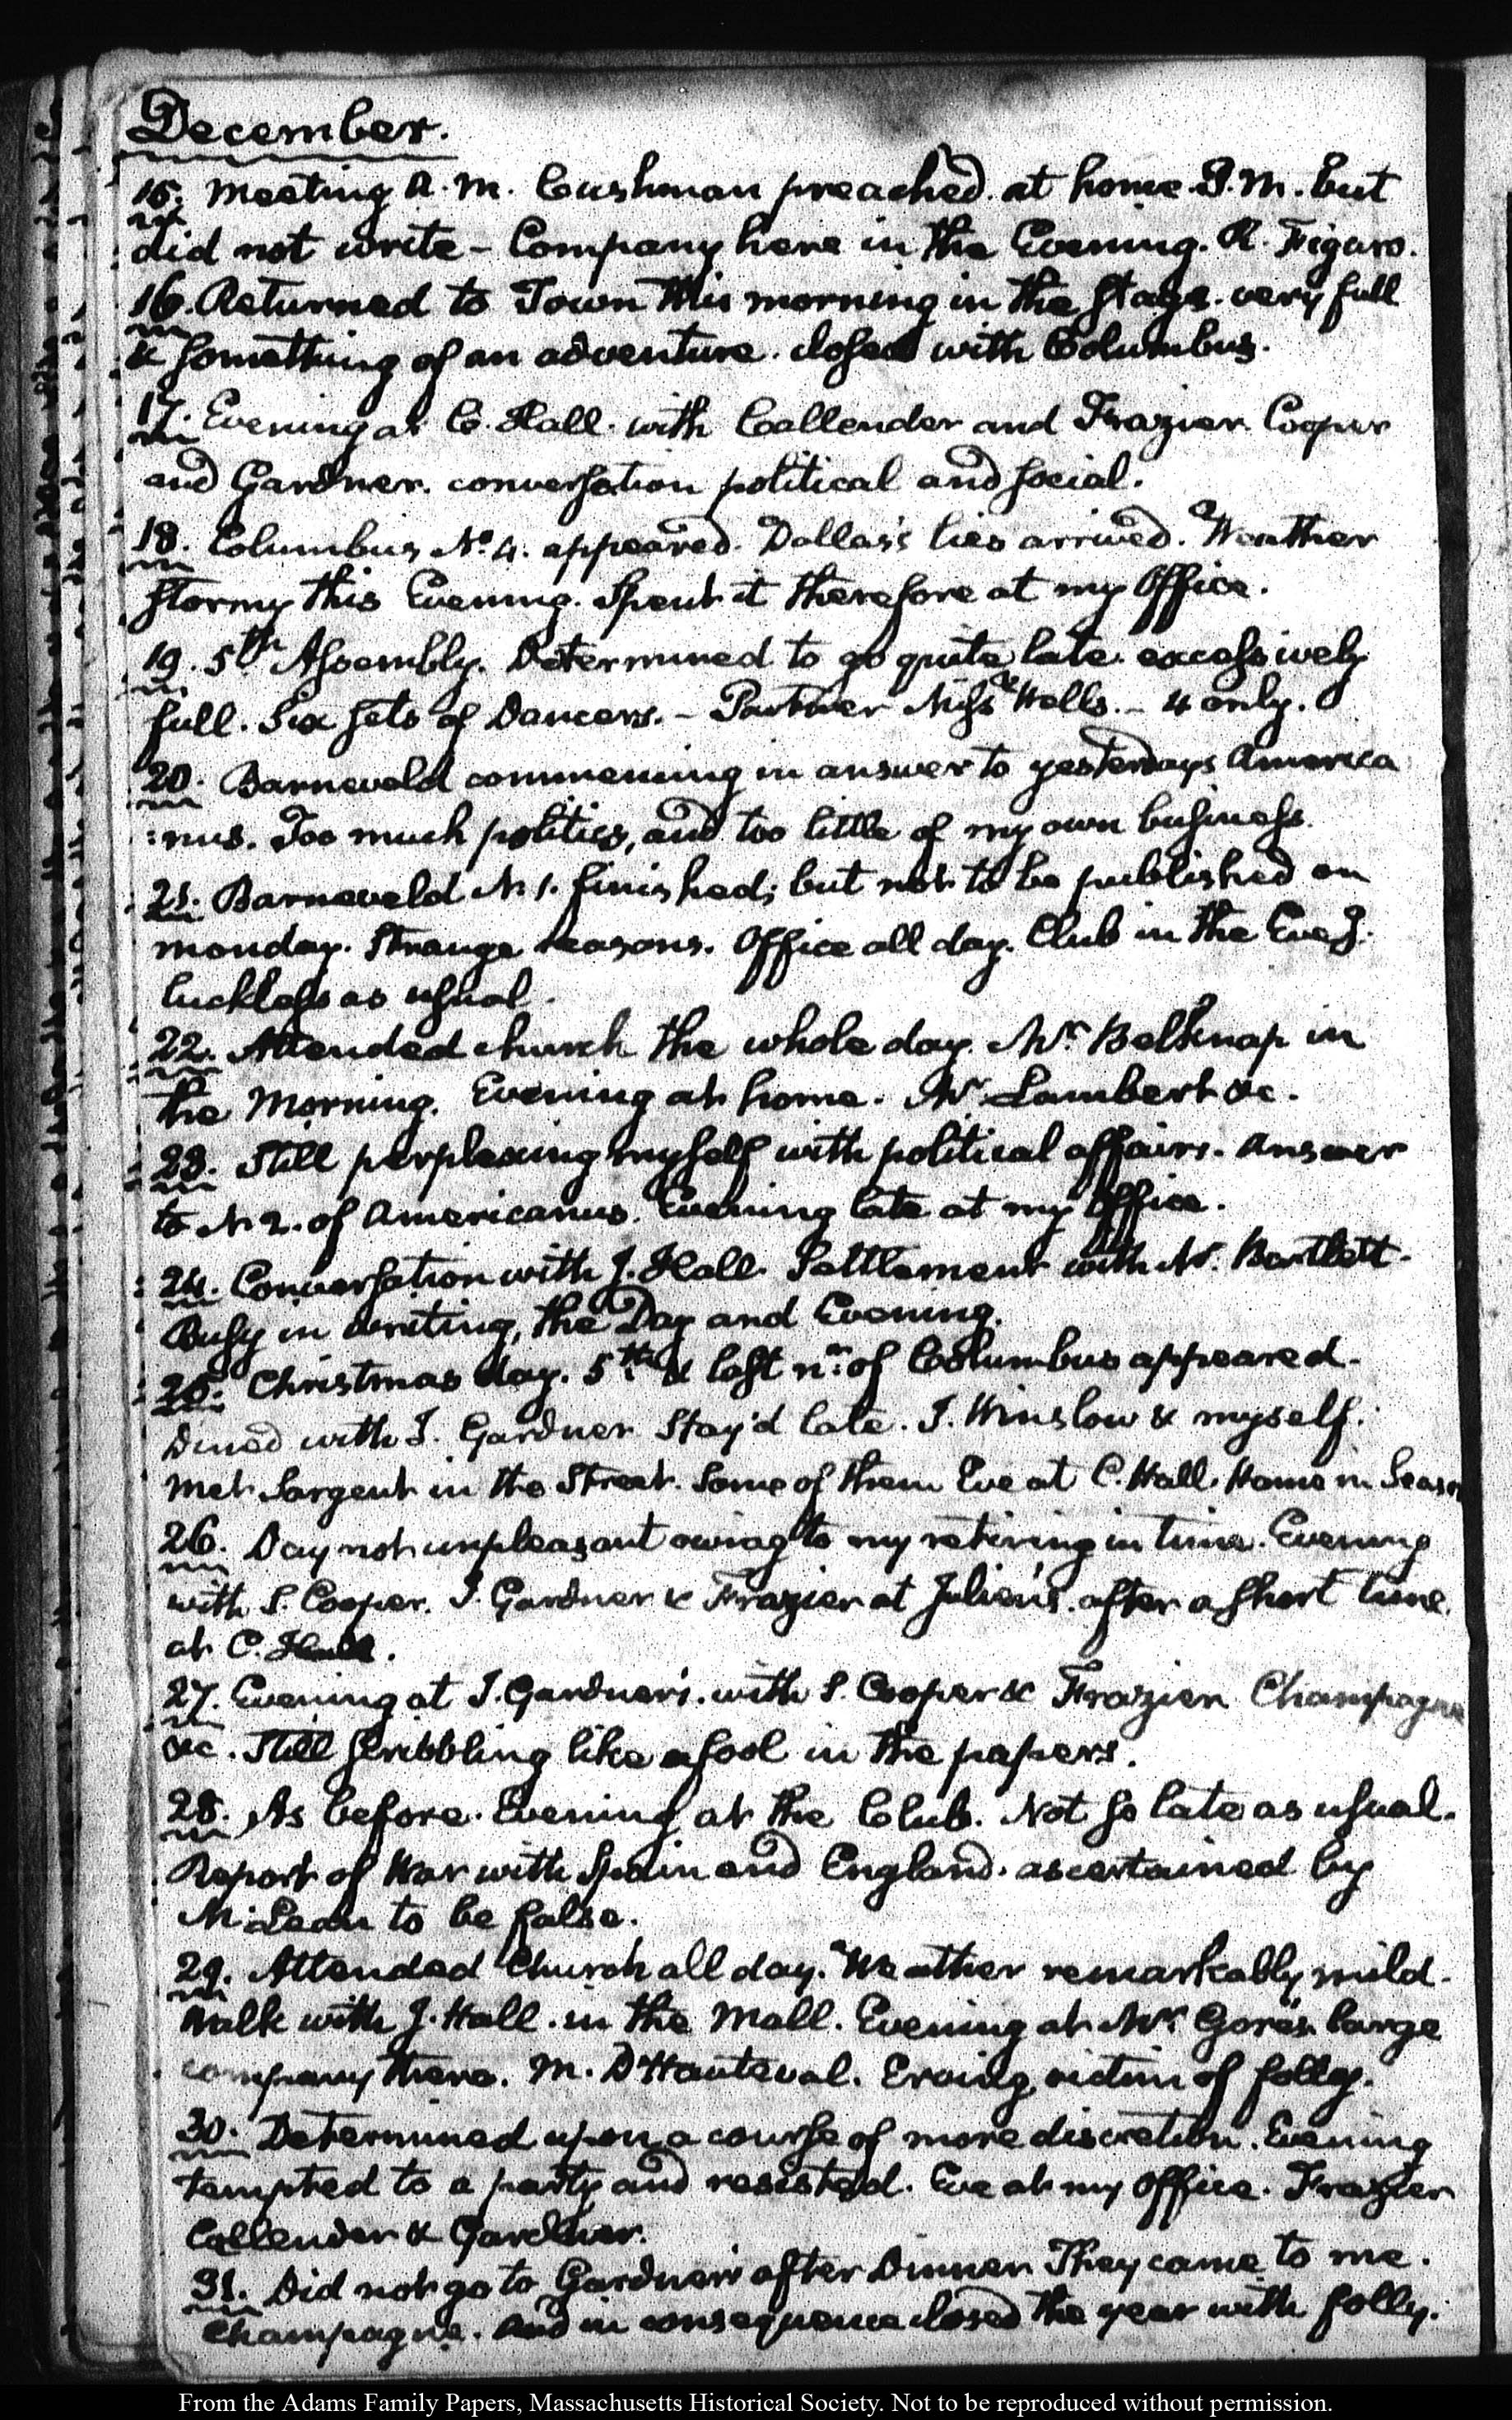 December.
15. Meeting A. M. Cushman preached. at home P. M. but
did not write – Company here in the Evening. R. Figaro.
16. Returned to Town this morning in the stage. very full
& something of an adventure. closed with Columbus.
17. Evening at C. Hall. with Callender and Frazier Cooper
and Gardner. conversation political and social.
18. Columbus No. 4. appeared. Dallas's lies arrived. Weather
stormy this Evening. Spent it therefore at my Office.
19. 5th Assembly. Determined to go quite late. excessively
full. Six sets of Dancers. – Partner Miss Wells. – 4 only.
20. Barneveld commencing in answer to yesterdays America
:nus. Too much politics, and too little of my own business.
21. Barneveld N. 1. finished; but not to be published on
monday. Strange reasons. Office all day. Club in the Eveg.
luckless as usual.
22. Attended church the whole day. Mr. Belknap in
the Morning. Evening at home. Mr. Lambert &c.
23. Still perplexing myself with political affairs. Answer
to N 2. of Americanus. Evening late at my Office.
24. Conversation with J. Hall. Settlement with Mr. Bartlett.
Busy in writing, the Day and Evening.
25. Christmas day. 5th & last nr. of Columbus appeared.
Dined with J. Gardner Stay'd late. J. Winslow & myself.
met Sargent in the Street. Some of them Eve at C. Hall. Home in Season
26. Day not unpleasant owing to my retiring in time. Evening
with S. Cooper. J. Gardner & Frazier at Julien's. after a short time
at C. Hall.
27. Evening at J. Gardner's. with S. Cooper & Frazier Champagne
&c. Still scribbling like a fool in the papers.
28. As before. Evening at the Club. Not so late as usual.
Report of War with Spain and England. ascertained by
M:Lean to be false.
29. Attended Church all day. Weather remarkably mild.
Walk with J. Hall. in the Mall. Evening at Mr. Gore's large
company there. M. D'Hauteval. Erving, victim of folly.
30. Determined upon a course of more discretion. Evening
tempted to a party and resisted. Eve at my Office. Frazier
Callender & Gardner.
31. Did not go to Gardner's after Dinner They came to me.
Champagne. And in consequence closed the year with folly.
From the Adams Family Papers, Massachusetts Historical Society. Not to be reproduced without permission.